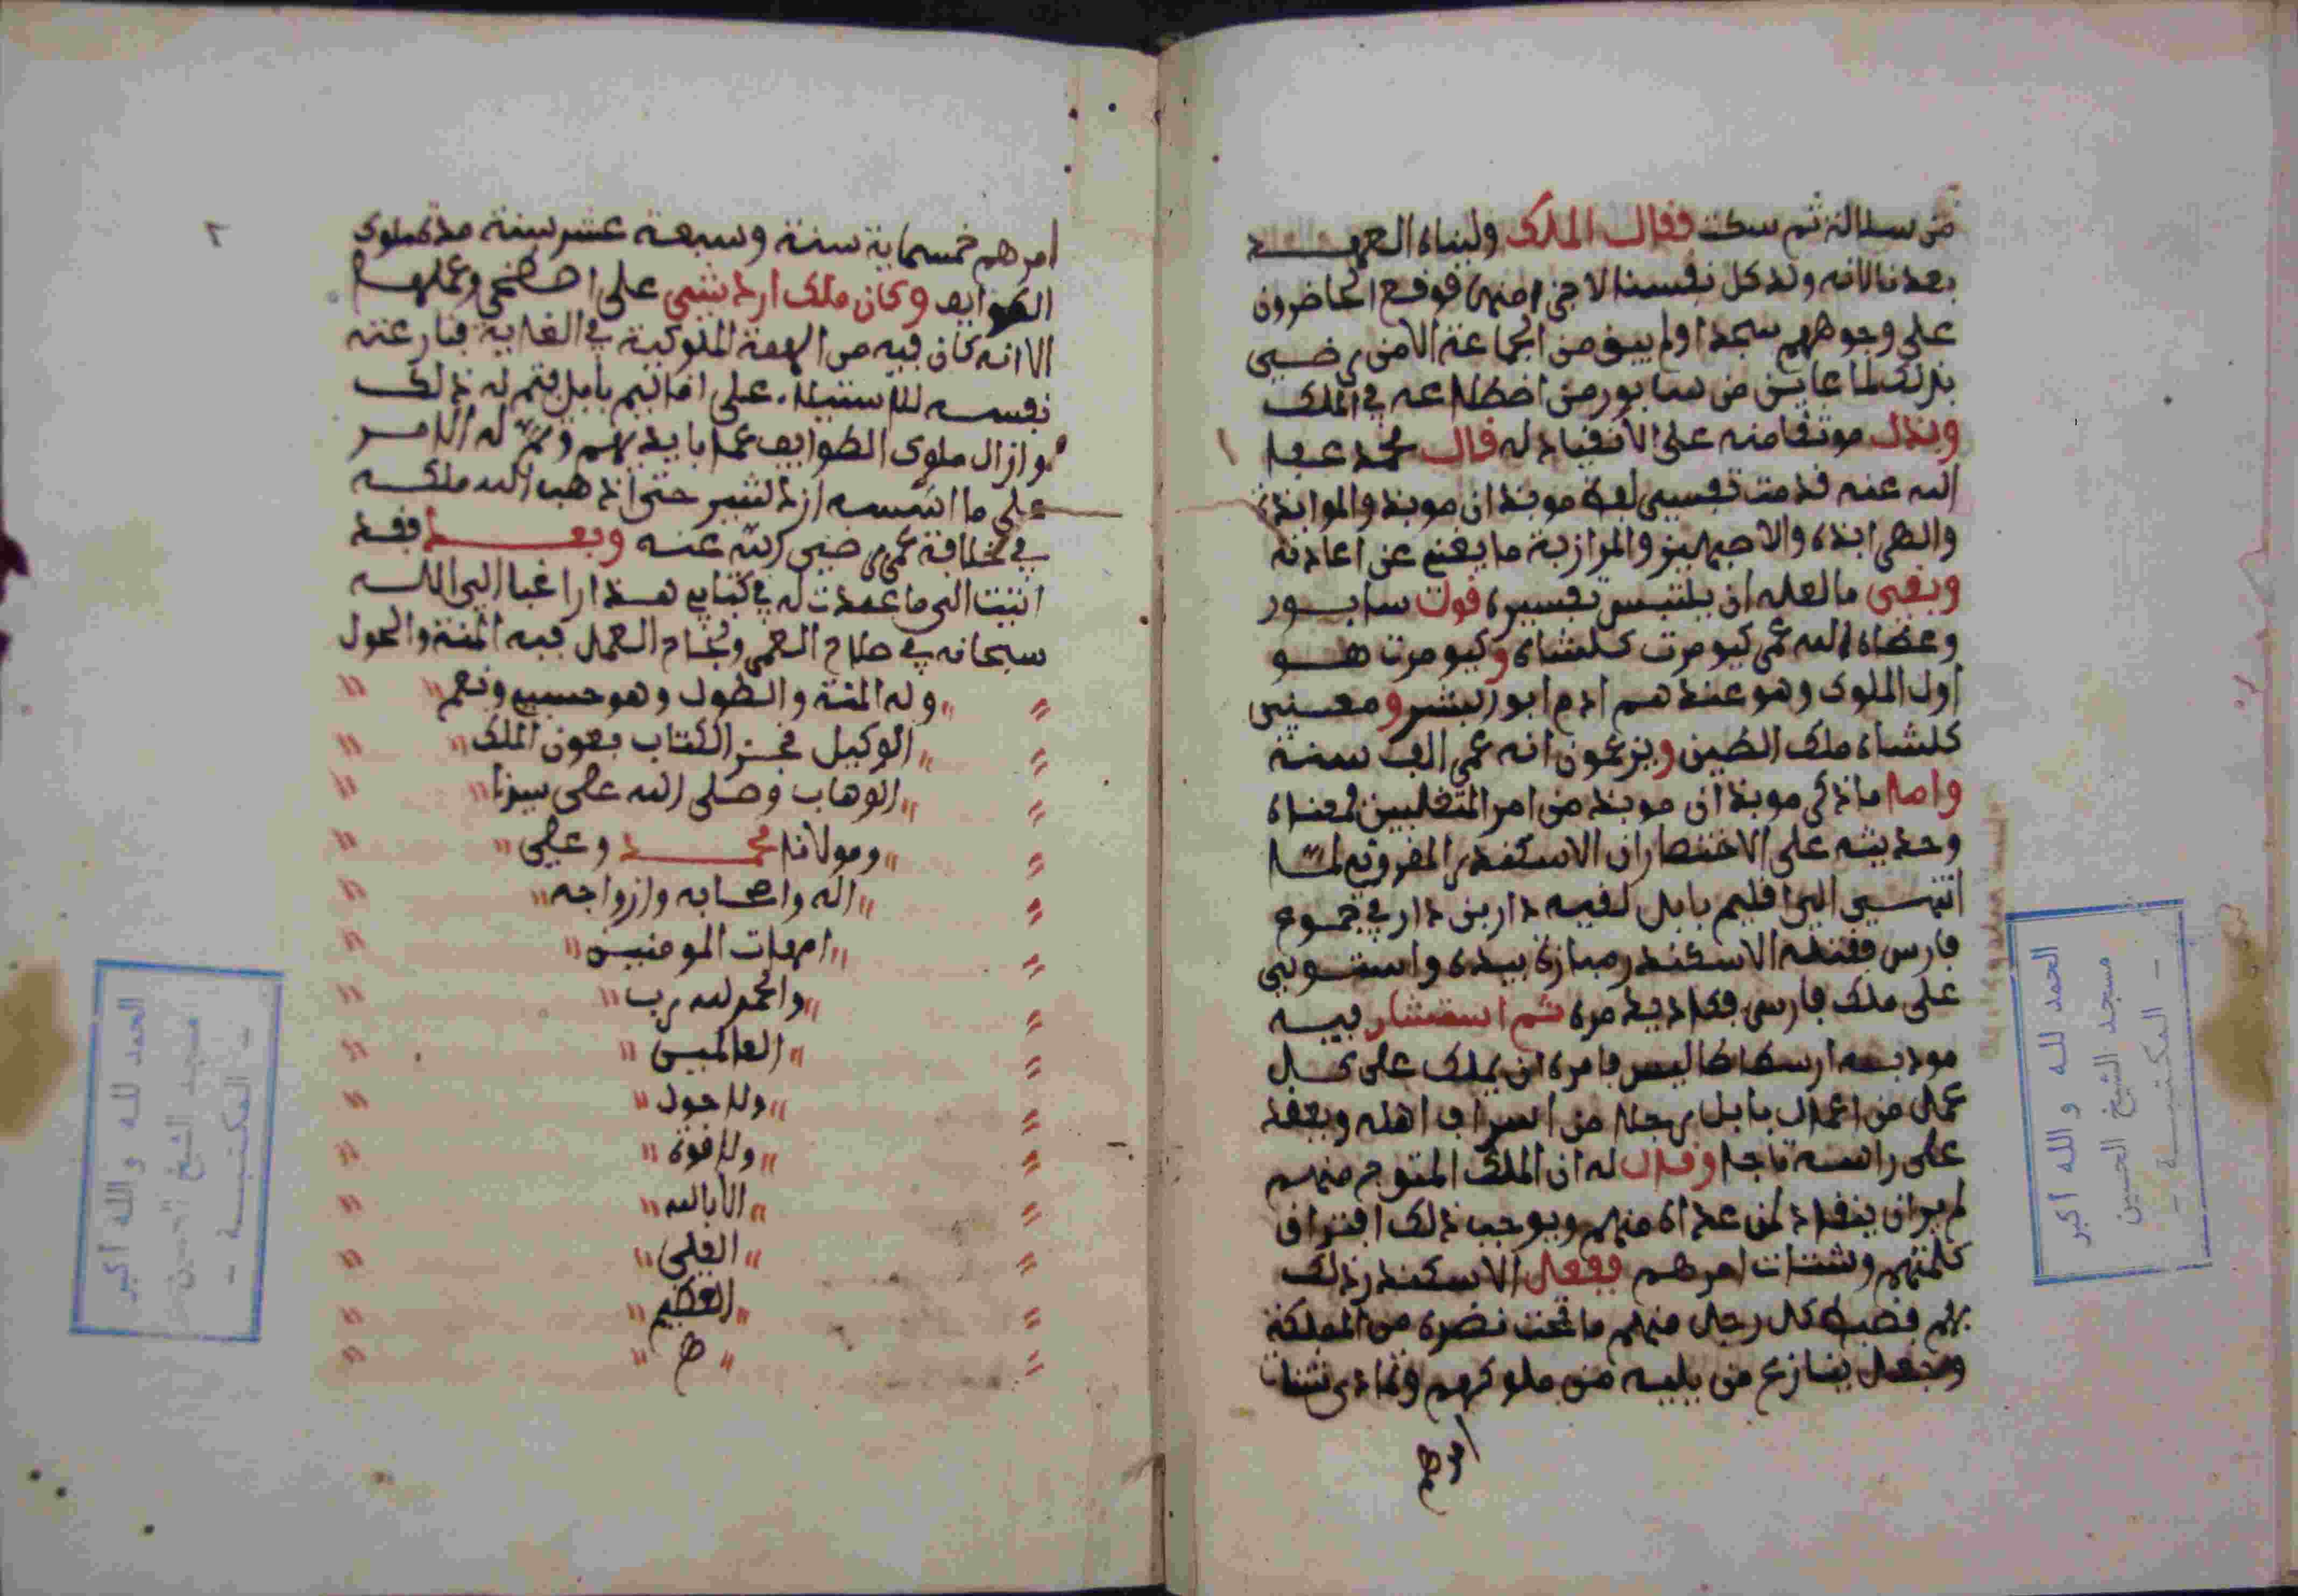 من سلالة ثم سكت فقال الملك ولبناه العهـــد
بعدنا لانه ولد كل نفسنا لا جزءا منها فوقع الحاضرون
على وجوههم سجدا ولم يبق من الجماعة الا من رضي
بذلك لما عاين من سابور من اضطلاعه في الملك
وبذل موثقا منه على الانقياد له قال محمد عفا
الله عنه قدمت تفسير لفظة موبذ ان موبذ والموابذة
والهرابذة والاصبهبذ والمرازبة ما يغني عن اعادته
وبقي ما لعله ان يلتبس تفسيره قول سابـور
وعطاه الله عمر كيومرت كلشاه وكيومرت هـو
اول الملوك وهو عندهم ادم ابو البشر ومعنى
كلشاه ملك الطين ويزعمون انه عمر الف سنة
واما ما ذكر موبذ ان موبذ من امر المتغلبين فمعناه
وحديثه على الاختصار ان الاسكندر المقدوني لما
انتهى الى اقليم بابل لقيه دار بن دار في جموع
فارس فقتله الاسكندر مبارزة بيده واستولى
على ملك فارس فكاد يدمره ثم استشار فيه
مودبه ارسطاطاليس فامره ان يملك على كل
عمل من اعمال بابل رجلا من اشراف اهله ويعقد
على راسه تاجا وقال له ان الملك المتوج منهم
لم ير ان ينقاد لمن عداه منهم ويوجب ذلك افتراق
كلمتهم وشتات امرهم ففعل الاسكندر ذلك
بهم فضبط كل رجل منهم ما تحت نضره من المملكة
وجعل ينازع من يليه من ملوكهم وتمادى شتات
امرهم
٢
امرهم خمسماية سنة وسبعة عشر سنة مدة ملوك
الطوايف وكان ملك اردشير على اصطخر وعملها
الا انه كان فيه من الهمة الملوكية في الغاية فنازعته
نفسه للاستيلاء على اقاليم بابل فتم له ذلك
وازال ملوك الطوايف عما بايديهم وتم له الامـر
على ما اسسه اردشير حتى اذهب الله ملكـه
في خلافة عمر رضي الله عنه وبعــد فقد
اتيت الى ما عمدت له في كتابي هـذا راغبا الى اللـه
سبحانه في صلاح العمر ونجاح العمل فبه المنة والحول
وله المنة والطول وهو حسبي ونعم
الوكيل نجز الكتاب بعون الملك
الوهاب وصلى الله على سيدنا
ومولانا محمــد وعلى
اله واصحابه وازواجه
امهات المومنين
والحمد لله رب
العالمين
ولا حول
ولا قوة
الا بالله
العلي
العظيم
الحمد لله والله اكبر
مسجد الشيخ الحسين
- المكتبــة -
الحمد لله والله اكبر
مسجد الشيخ الحسين
- المكتبــة -